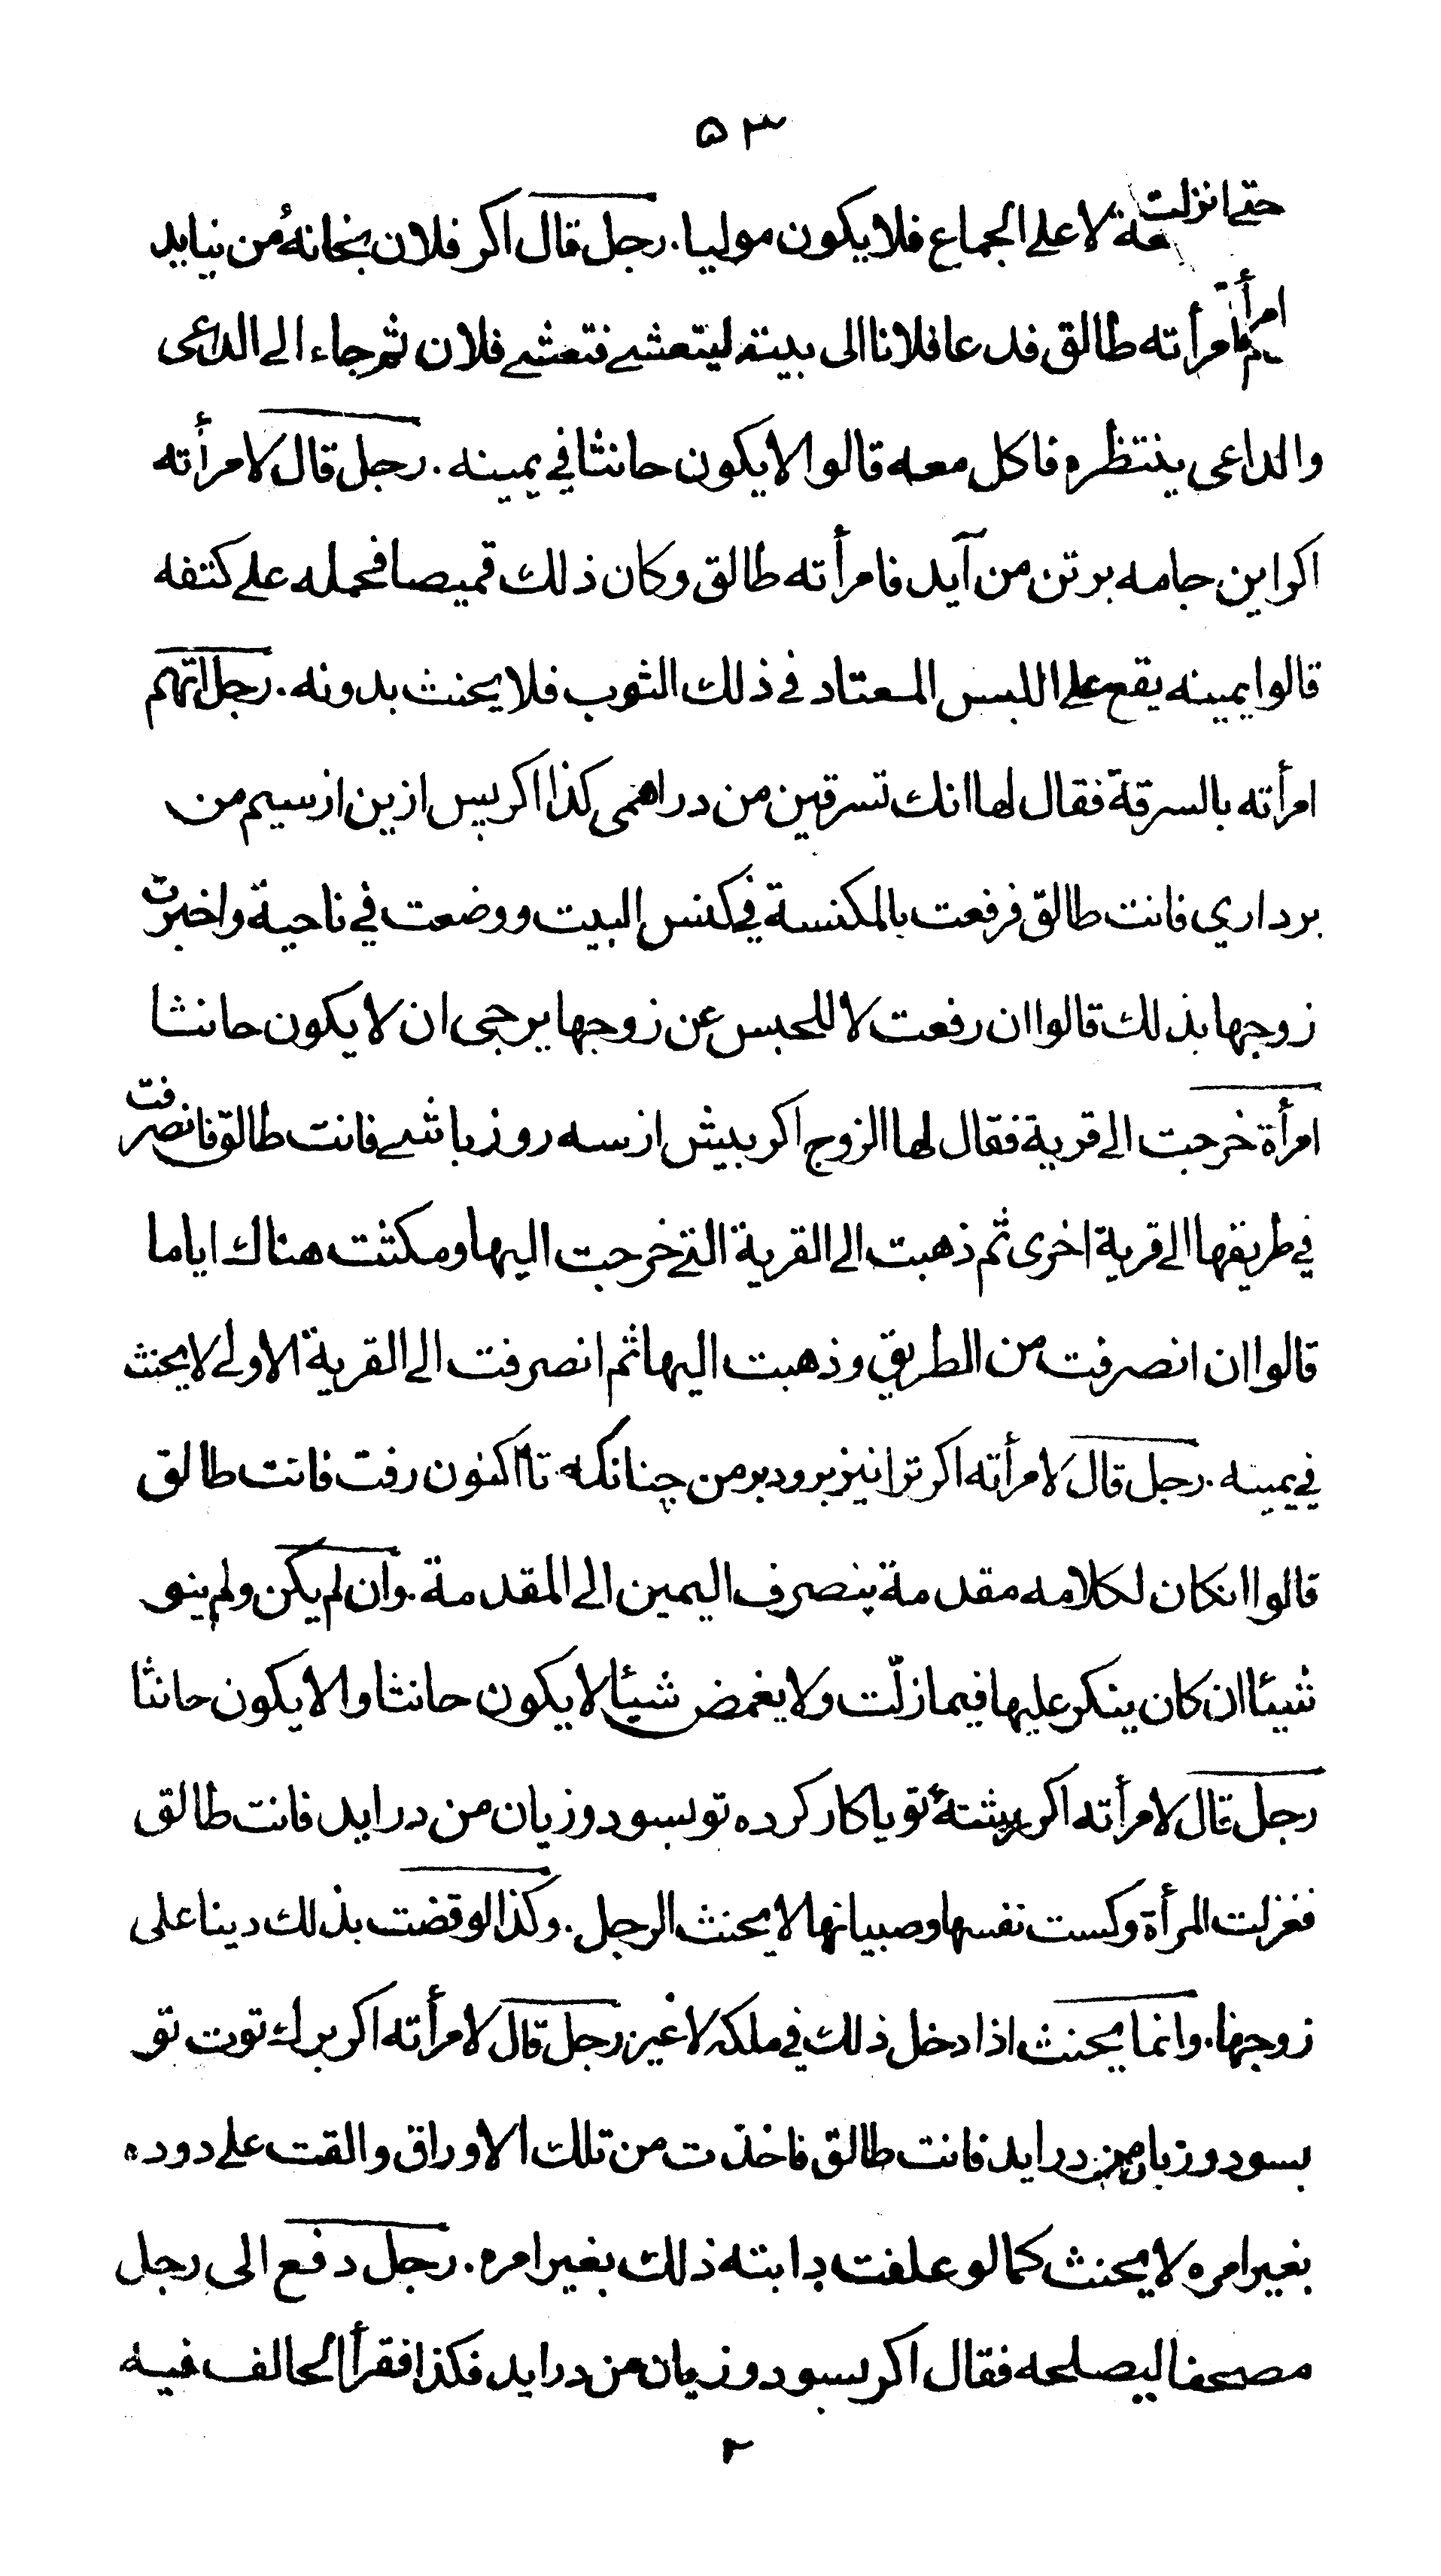 ۵۳
حتى انزلت معة لا على الجماع فلا يكون موليا. رجل قال اكر فلان بخانهٔ من نيايد
امرأ فامرأته طالق فدعا فلانا الى بيته ليتعشى فتعشى فلان ثم جاء الى الداعى
والداعى ينتظره فاكل معه قالوا لا يكون حانثا في يمينه. رجل قال لامرأته
اكر اين جامه بر تن من آيد فامرأته طالق وكان ذلك قميصا فحمله على كتفه
قالوا يمينه يقع على اللبس المعتاد في ذلك الثوب فلا يحنث بدونه. رجل اتهم
امرأته بالسرقة فقال لها انك تسرقين من دراهمى كذا اكر پس ازين از سيم من
بردارى فانت طالق فرفعت بالمكنسة في كنس البيت ووضعت في ناحية واخبرت
زوجها بذلك قالوا ان رفعت لا للحبس عن زوجها يرجى ان لا يكون حانثا
امرأة خرجت الى قرية فقال لها الزوج اكر بيش از سه روز باشى فانت طالق فانصرفت
في طريقها الى قرية اخرى ثم ذهبت الى القرية التى خرجت اليها ومكثت هناك اياما
قالوا ان انصرفت من الطريق وذهبت اليها ثم انصرفت الى القرية الاولى لا يحنث
في يمينه. رجل قال لامرأته اكر ترا نيز برود بر من چنانكه تا اكنون رفت فانت طالق
قالوا انكان لكلامه مقدمة ينصرف اليمين الى المقدمة. وان لم يكن ولم ينو
شيئا ان كان ينكر عليها فيما زلّت ولا يغمض شيئا لا يكون حانثا والا يكون حانثا
رجل قال لامرأته اكر رشتهٔ تو يا كار كرده تو بسود وزيان من درايد فانت طالق
فغزلت المرأة وكست نفسها وصبيانها لا يحنث الرجل. وكذا لو قضت بذلك دينا على
زوجها. وانما يحنث اذا دخل ذلك في ملكه لا غير رجل قال لامرأته اكر برك توت تو
بسود وزيان من درايد فانت طالق فاخذت من تلك الاوراق والقت على دوده
بغير امره لا يحنث كما لو علفت دابته ذلك بغير امره. رجل دفع الى رجل
مصحفا ليصلحه فقال اكر بسود وزيان من درايد فكذا فقرأ الحالف فيه
۲